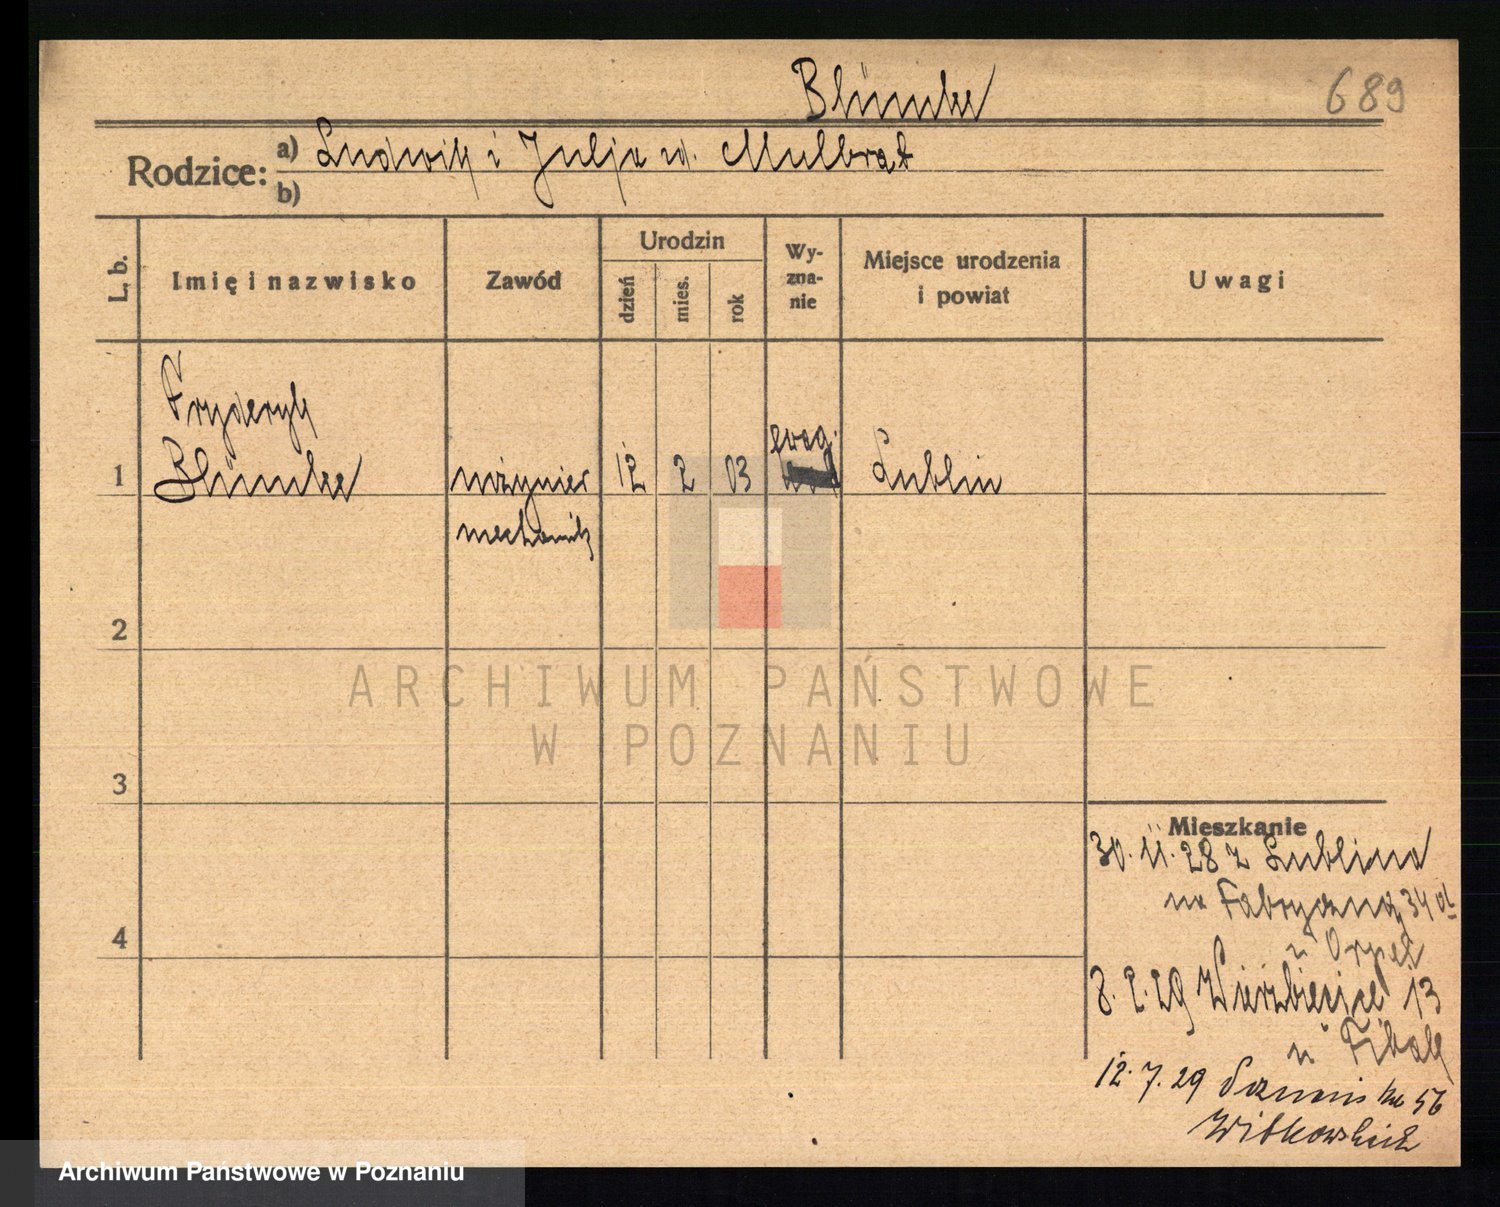 Blümke
689
Rodzice: a) Ludwik i Julja ud. Mulbrat
b)
L. b.
Imię i nazwisko
Zawód
Urodzin
dzień
mies.
rok
Wy-
zna-
nie
Miejsce urodzenia
i powiat
Uwagi
Fryderyk
ewag.
1 Blümke inżynier 12 2 03 Lublin
mechanik
2
ARCHIWUM PAŃSTWOWE
W POZNANIU
3
Mieszkanie
30.11.28 z Lublina
na Fabryczną 34
4
8.2.29 Wierzbięcice 13
12.7.29 Poznańska 56
Archiwum Państwowe w Poznaniu